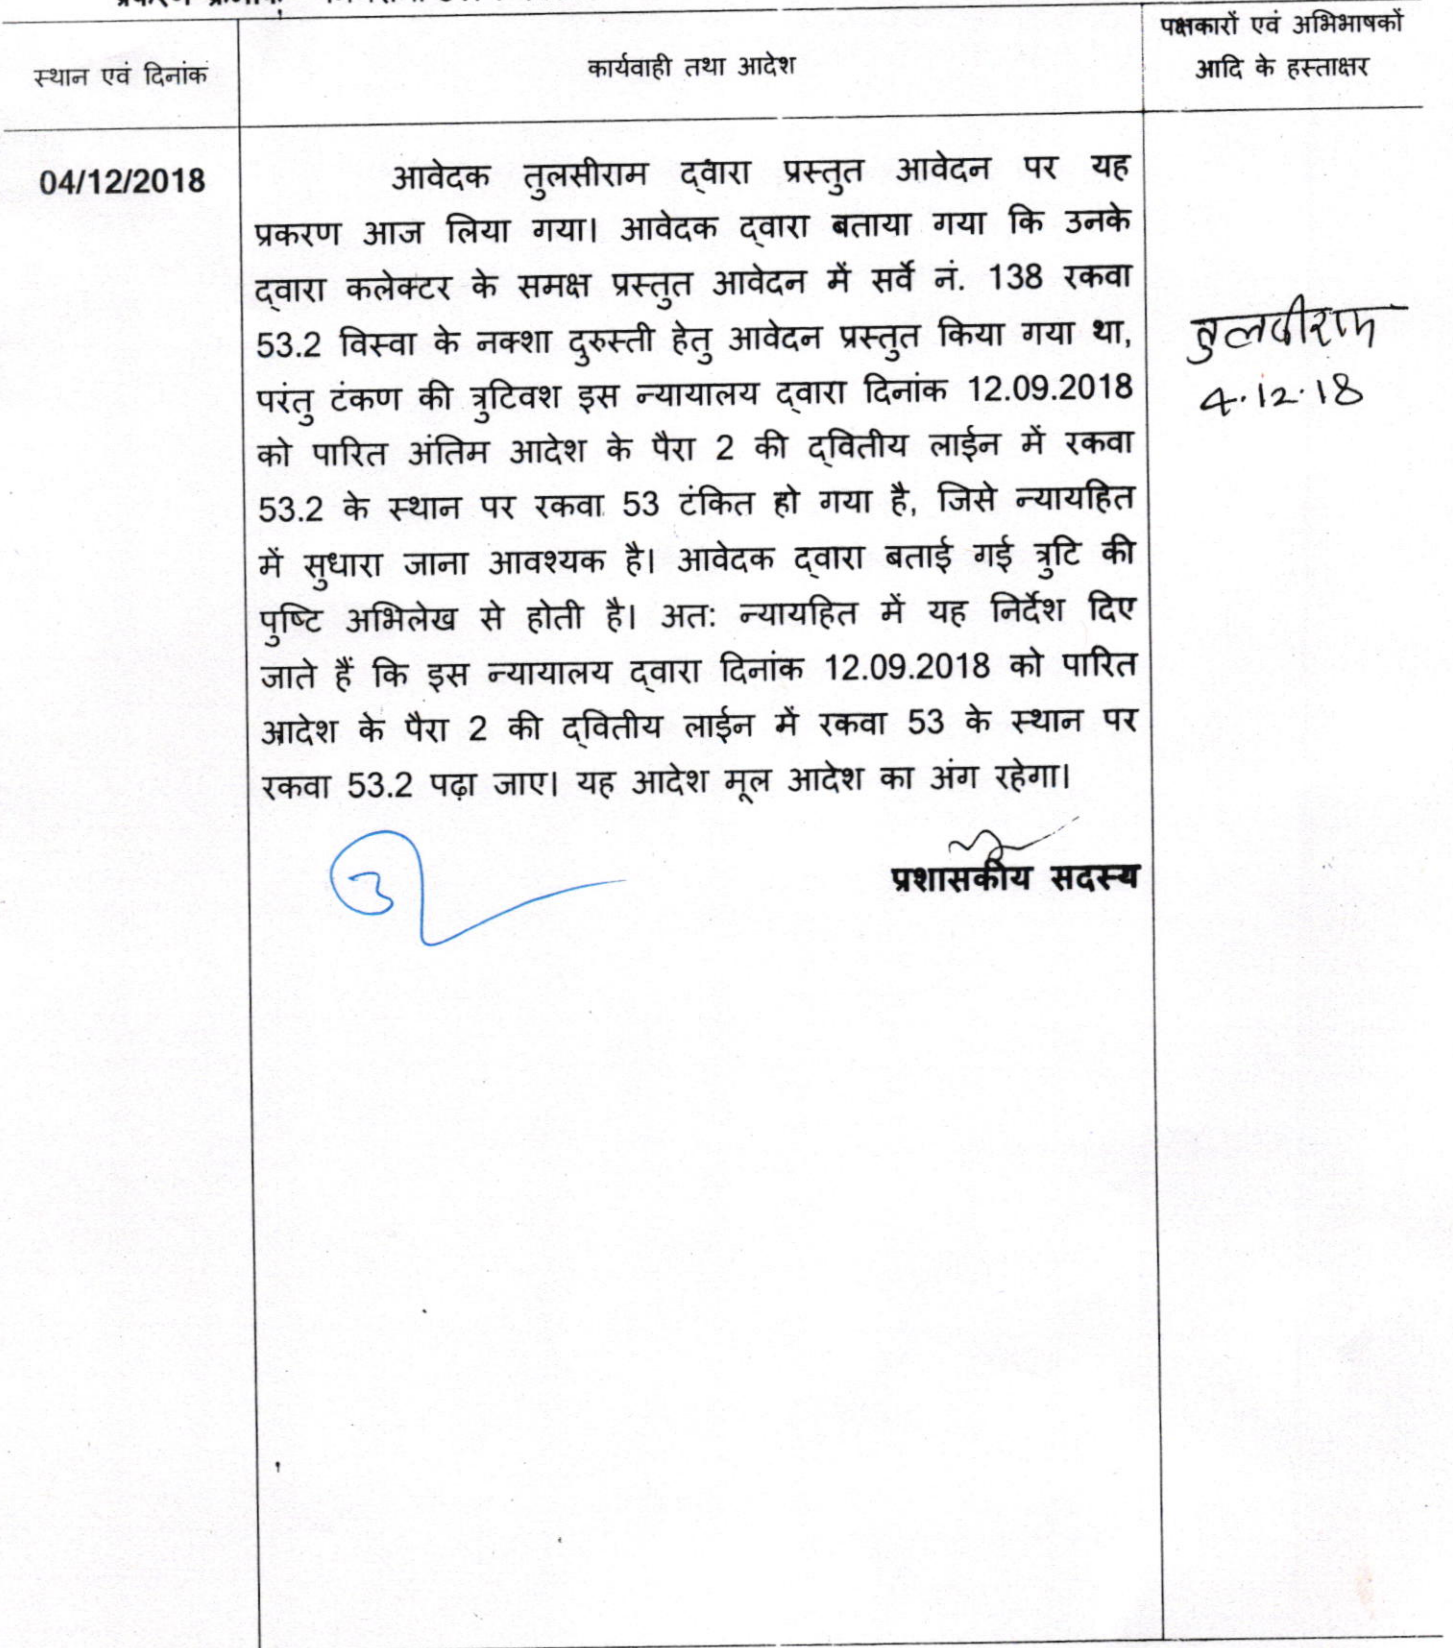 पक्षकारों एवं अभिभाषकों
स्थान एवं दिनांक
कार्यवाही तथा आदेश
आदि के हस्ताक्षर
04/12/2018
आवेदक तुलसीराम द्वारा प्रस्तुत आवेदन पर यह
प्रकरण आज लिया गया। आवेदक द्वारा बताया गया कि उनके
द्वारा कलेक्टर के समक्ष प्रस्तुत आवेदन में सर्वे नं. 138 रकवा
53.2 विस्वा के नक्शा दुरुस्ती हेतु आवेदन प्रस्तुत किया गया था,
परंतु टंकण की त्रुटिवश इस न्यायालय द्वारा दिनांक 12.09.2018
को पारित अंतिम आदेश के पैरा 2 की द्वितीय लाईन में रकवा
53.2 के स्थान पर रकवा 53 टंकित हो गया है, जिसे न्यायहित
में सुधारा जाना आवश्यक है। आवेदक द्वारा बताई गई त्रुटि की
पुष्टि अभिलेख से होती है। अतः न्यायहित में यह निर्देश दिए
जाते हैं कि इस न्यायालय द्वारा दिनांक 12.09.2018 को पारित
आदेश के पैरा 2 की द्वितीय लाईन में रकवा 53 के स्थान पर
रकवा 53.2 पढ़ा जाए। यह आदेश मूल आदेश का अंग रहेगा।
प्रशासकीय सदस्य
तुलसीराम
4.12.18